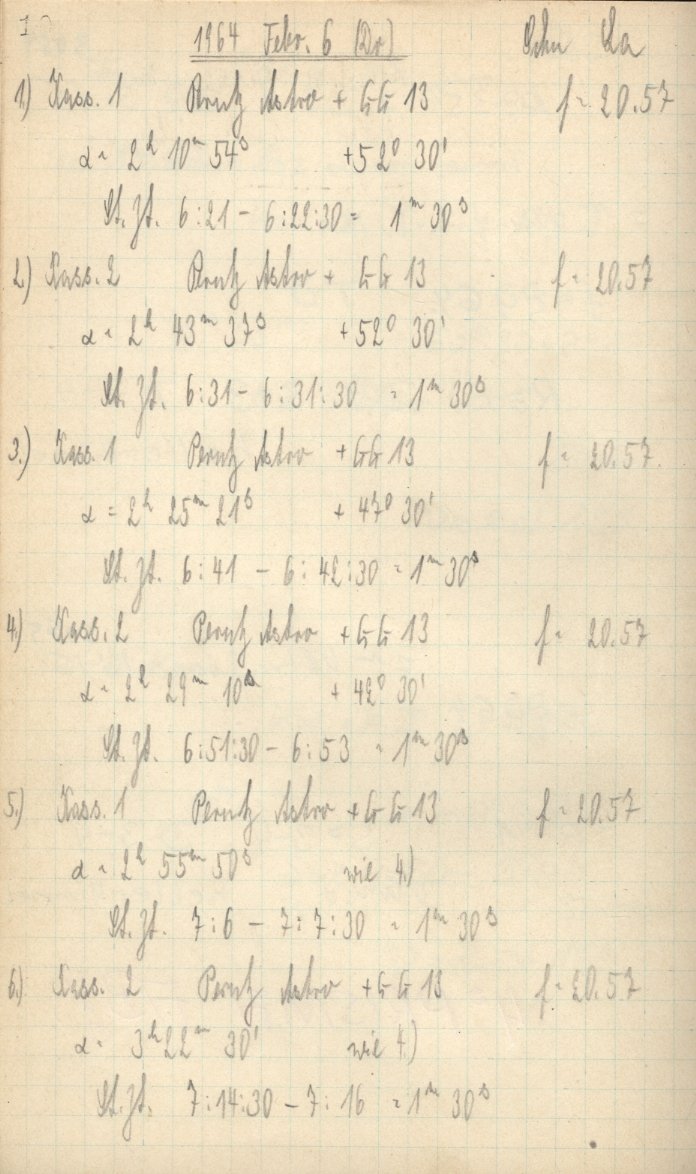 1964 Febr. 6 (Do) Schu La
1.) Kass. 1 Perutz Astro + GG 13 f = 20.57
α = 2h 10m 54s +52° 30'
St. Zt. 6:21 - 6:22:30 = 1m 30s
2.) Kass. 2 Perutz Astro + GG 13 f = 20.57
α = 2h 43m 37s +52° 30'
St. Zt. 6:31 - 6:31:30 = 1m 30s
3.) Kass. 1 Perutz Astro + GG 13 f = 20.57
α = 2h 25m 21s + 47° 30'
St. Zt. 6:41 - 6:42:30 = 1m 30s
4.) Kass. 2 Perutz Astro + GG 13 f = 20.57
α = 2h 29m 10s + 42° 30'
St. Zt. 6:51:30 - 6:53 = 1m 30s
5.) Kass. 1 Perutz Astro + GG 13 f = 20.57
α = 2h 55m 50s wie 4.)
St. Zt. 7:6 - 7:7:30 = 1m 30s
6.) Kass. 2 Perutz Astro + GG 13 f = 20.57
α = 3h 22m 30' wie 4.)
St. Zt. 7:14:30 - 7:16 = 1m 30s